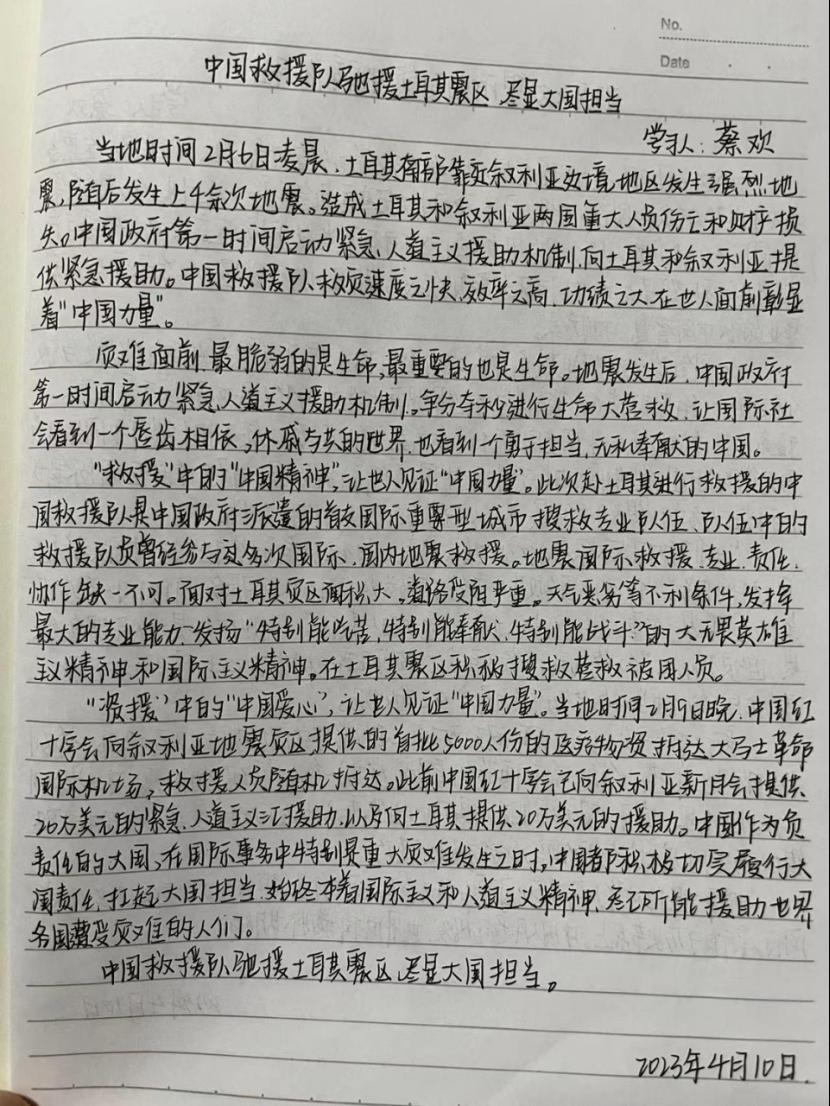 No.
Date . .
中国救援队驰援土耳其震区 尽显大国担当
学习人：蔡欢
当地时间2月6日凌晨，土耳其南部靠近叙利亚边境地区发生强烈地
震，随后发生上千余次地震。造成土耳其和叙利亚两国重大人员伤亡和财产损
失。中国政府第一时间启动紧急人道主义援助机制，向土耳其和叙利亚提
供紧急援助。中国救援队救灾速度之快、效率之高、功绩之大，在世人面前彰显
着“中国力量”。
灾难面前，最脆弱的是生命，最重要的也是生命。地震发生后，中国政府
第一时间启动紧急人道主义援助机制。争分夺秒进行生命大营救，让国际社
会看到一个唇齿相依、休戚与共的世界，也看到一个勇于担当、无私奉献的中国。
“救援”中的“中国精神”，让世人见证“中国力量”。此次赴土耳其进行救援的中
国救援队是中国政府派遣的首支国际重型城市搜救专业队伍，队伍中的
救援队员曾经参与过多次国际、国内地震救援。地震国际救援，专业、责任、
协作缺一不可。面对土耳其灾区面积大，道路受阻严重，天气恶劣等不利条件，发挥
最大的专业能力，发扬“特别能吃苦，特别能奉献，特别能战斗”的大无畏英雄
主义精神和国际主义精神。在土耳其震区积极搜救营救被困人员。
“资援”中的“中国爱心”，让世人见证“中国力量”。当地时间2月9日晚，中国红
十字会向叙利亚地震灾区提供的首批5000人份的医疗物资抵达大马士革
国际机场，救援人员随机抵达。此前中国红十字会已向叙利亚新月会提供
20万美元的紧急人道主义援助，以及向土耳其提供20万美元的援助。中国作为负
责任的大国，在国际事务中特别是重大灾难发生之时，中国都积极切实履行大
国责任，扛起大国担当，始终本着国际主义和人道主义精神，尽己所能援助世界
各国遭受灾难的人们。
中国救援队驰援土耳其震区，尽显大国担当。
2023年4月10日.